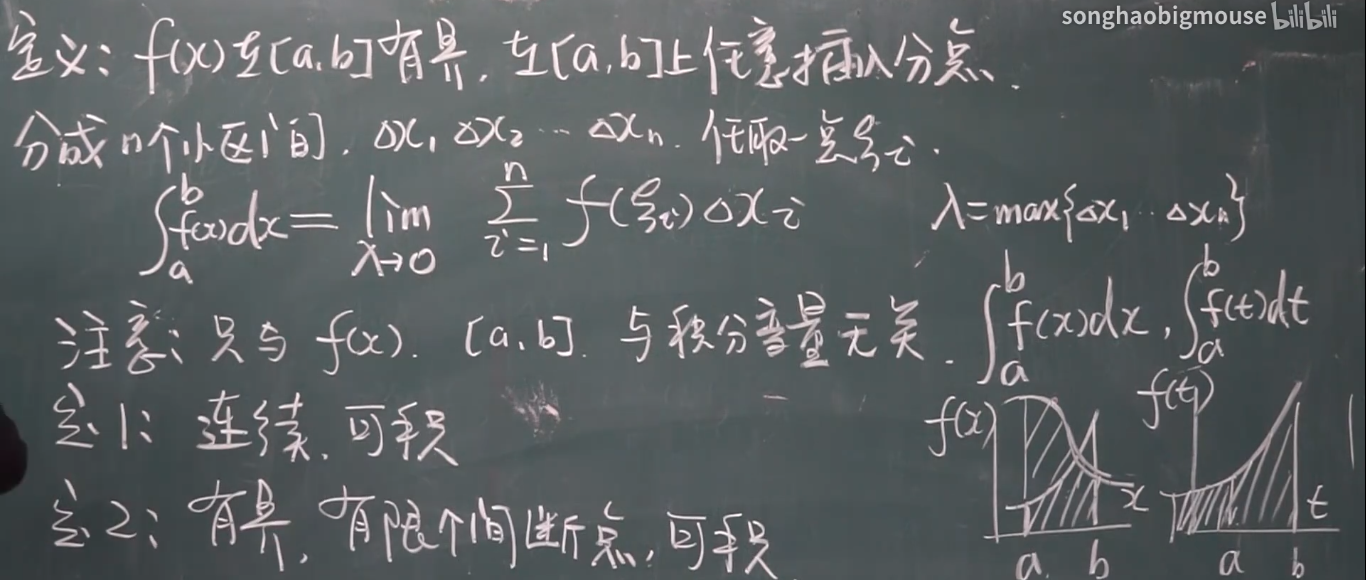 songhaobigmouse bilibili
定义: f(x)在[a,b]有界, 在[a,b]上任意插入分点,
分成n个小区间, Δx₁ Δx₂ … Δxₙ. 任取一点ξᵢ.
∫ₐᵇf(x)dx = lim_{λ→0} ∑_{i=1}^{n} f(ξᵢ)Δxᵢ λ=max{Δx₁ … Δxₙ}
注意: 只与 f(x). [a,b]. 与积分变量无关. ∫ₐᵇf(x)dx, ∫ₐᵇf(t)dt
定1: 连续, 可积
定2: 有界, 有限个间断点, 可积
f(x) x a b
f(t) t a b